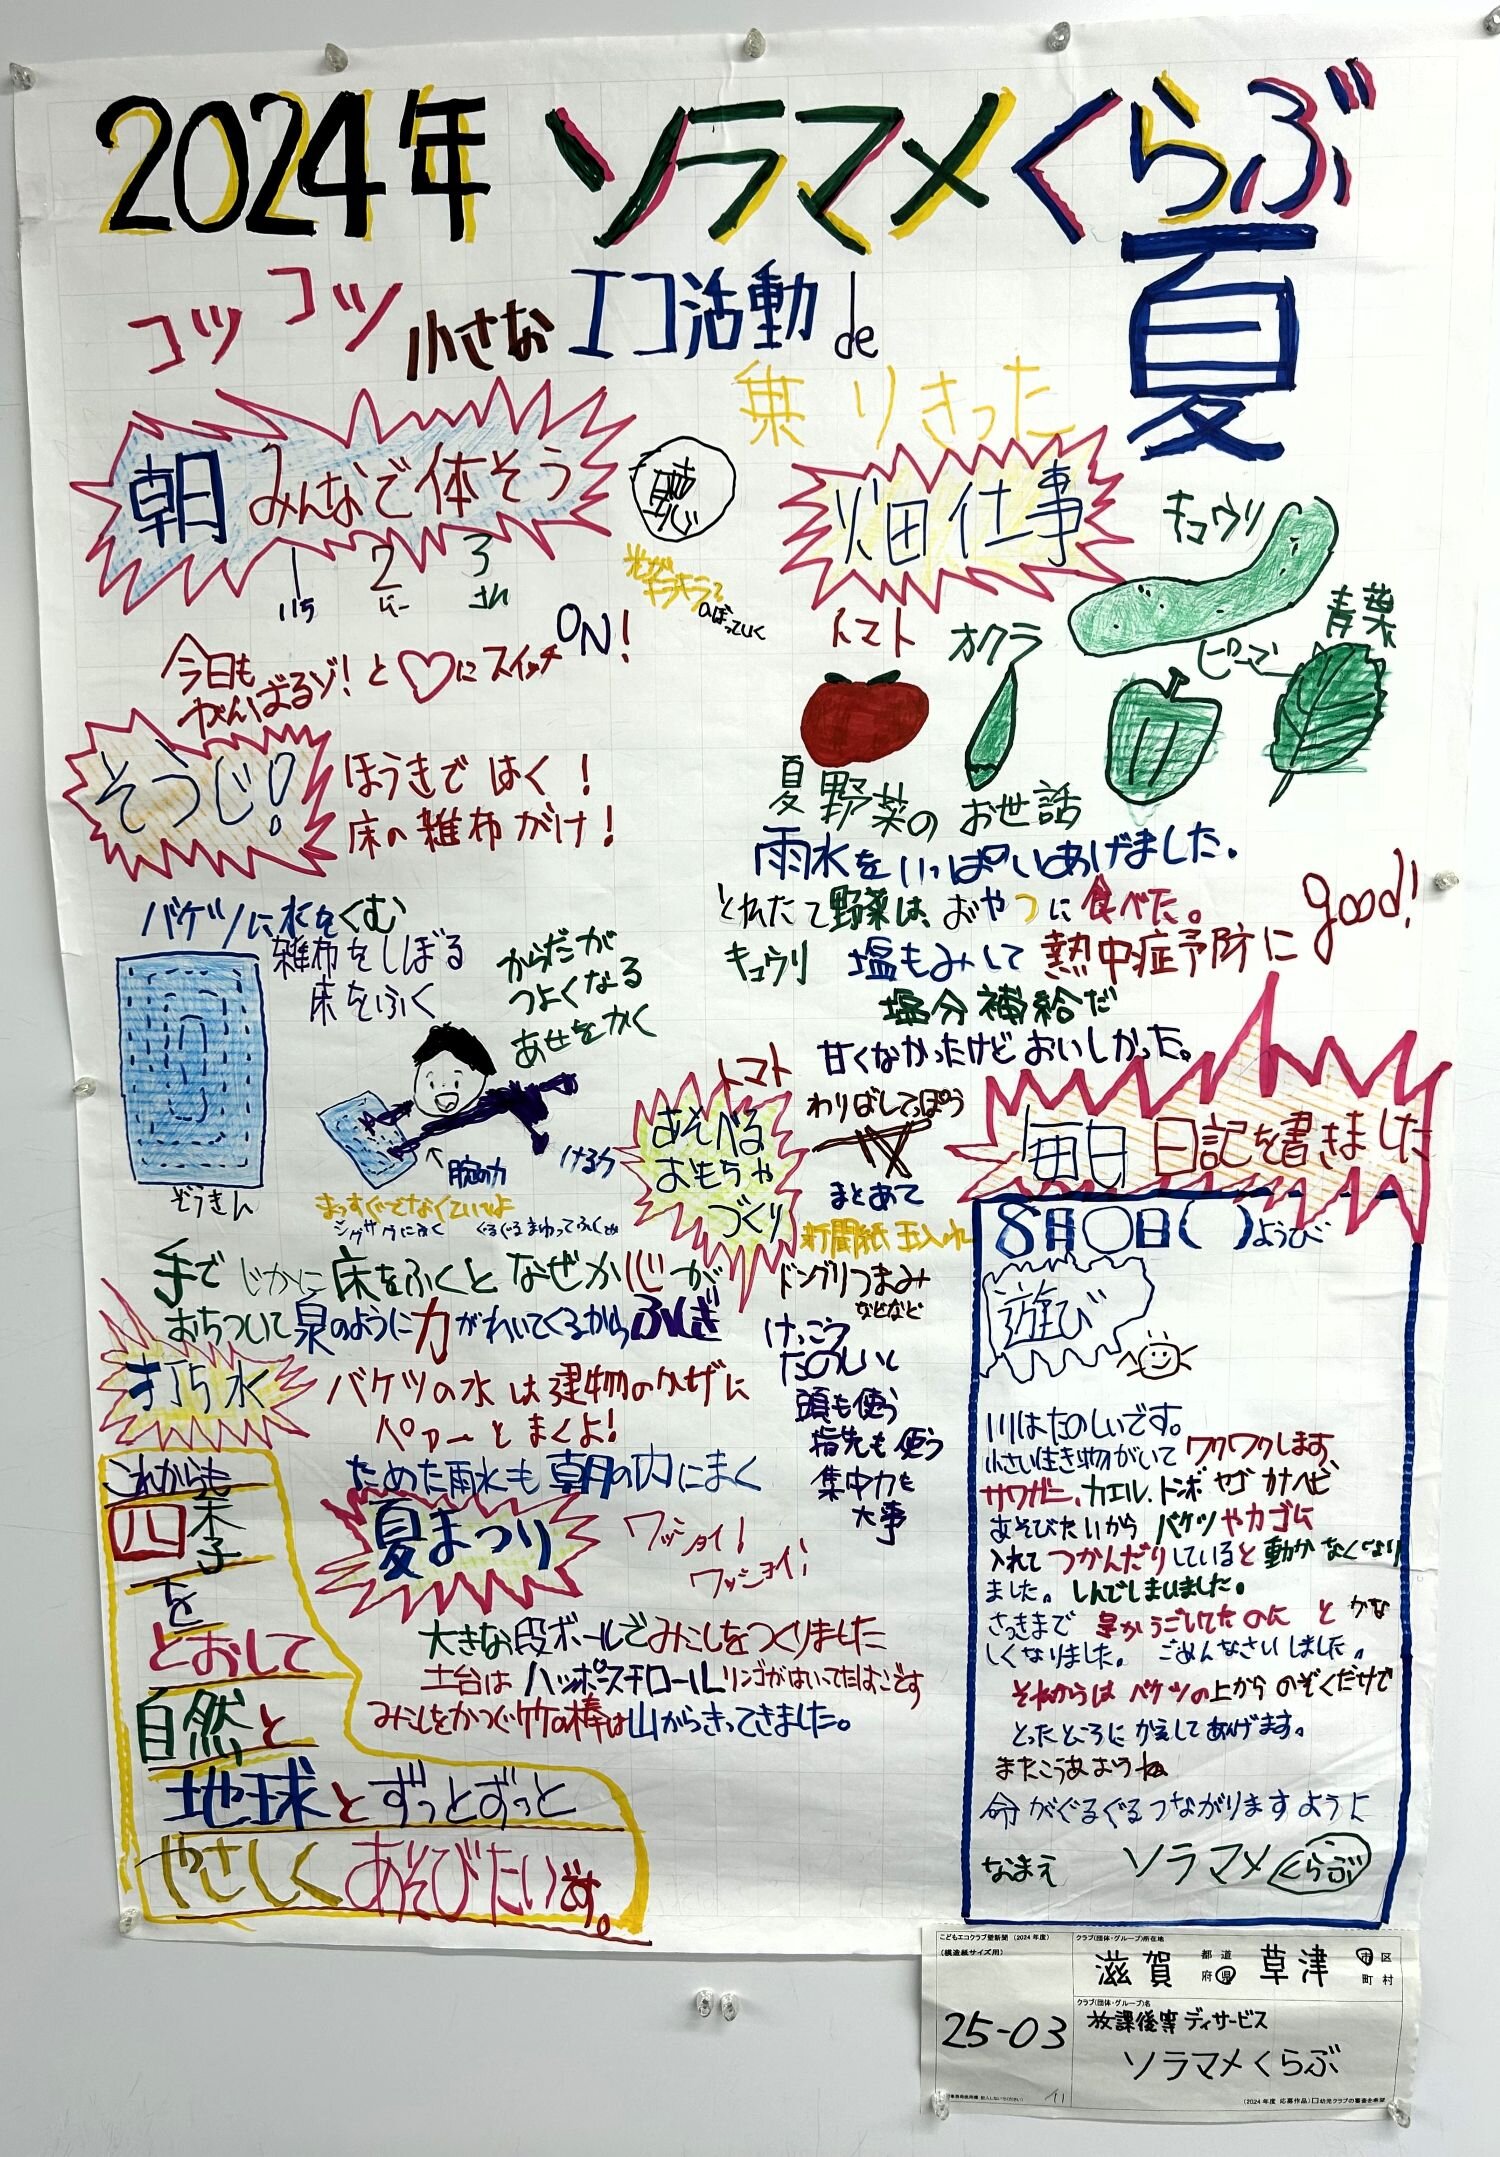 2024年 ソラマメくらぶ
コツコツ 小さな エコ活動 de
乗りきった 夏
朝 みんなで体そう
1 2 3
いち に さん
今日も
がんばるゾ!と♡にスイッチON!
光が
キラキラ
のぼっていく
そうじ!
ほうきで はく!
床の雑布がけ!
バケツに水をくむ
雑布をしぼる
床をふく
からだが
つよくなる
あせをかく
ぞうきん
腕の力
ける力
まっすぐでなくていいよ
ジグザグにふく
ぐるぐるまわってふくぬ
手で じかに 床をふくと なぜか 心が
おちついて 泉のように 力が わいてくるから ふしぎ
打ち水
バケツの水 は 建物のカゲに
ペァーと まくよ!
ためた雨水も 朝の内にまく
夏まつり
ワッショイ!
ワッショイ!
大きな段ボールでみこしをつくりました
土台は ハッポースチロール リンゴがはいってたはこです
みこしをかつぐ竹の棒は山からきってきました。
これからも
四季
を
とおして
自然と
地球とずっとずっと
やさしく あそびたいです。
畑仕事
キュウリ
トマト
オクラ
ピーマン
青葉
夏野菜の お世話
雨水をいっぱいあげました。
とれたて野菜は、おやつに食べた。
キュウリ 塩もみして 熱中症予防に good!
塩分補給だ
トマト 甘くなかったけど おいしかった。
あそべる
おもちゃ
づくり
わりばしてっぽう
まとあて
新聞紙 玉入れ
ドングリつまみ
などなど
けっこう
たのしいし
頭も使う
指先も使う
集中力も
大事
毎日 日記を書きました
8月〇日( )ようび
遊び
川はたのしいです。
小さい生き物がいて ワクワクします、
サワガニ、カエル、トンボ ヤゴ カナヘビ
あそびたいから バケツやカゴに
入れて つかんだりしていると 動かなくなり
ました。しんでしまいました。
さっきまで 早かうごしてたのに と かな
しくなりました。ごめんなさい しました。
それからは バケツの上から のぞくだけで
とったところに かえしてあげます。
またこうあおうね
命がぐるぐるつながりますように
なまえ ソラマメくらぶ
こどもエコクラブ壁新聞 (2024年度)
(模造紙サイズ用)
25-03
クラブ(団体・グループ)所在地
滋賀 都道府県 草津 市区町村
クラブ(団体・グループ)名
放課後等デイサービス
ソラマメくらぶ
(2024年度 応募作品)□幼児クラブの審査を希望